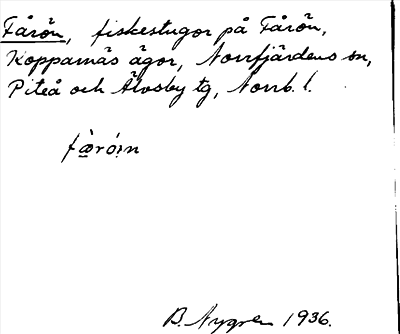 Fårön, fiskestugor på Fårön,
Kopparnäs ägor, Norrfjärdens sn,
Piteå och Älvsby tg, Norrb. l.
B. Nygren 1936.